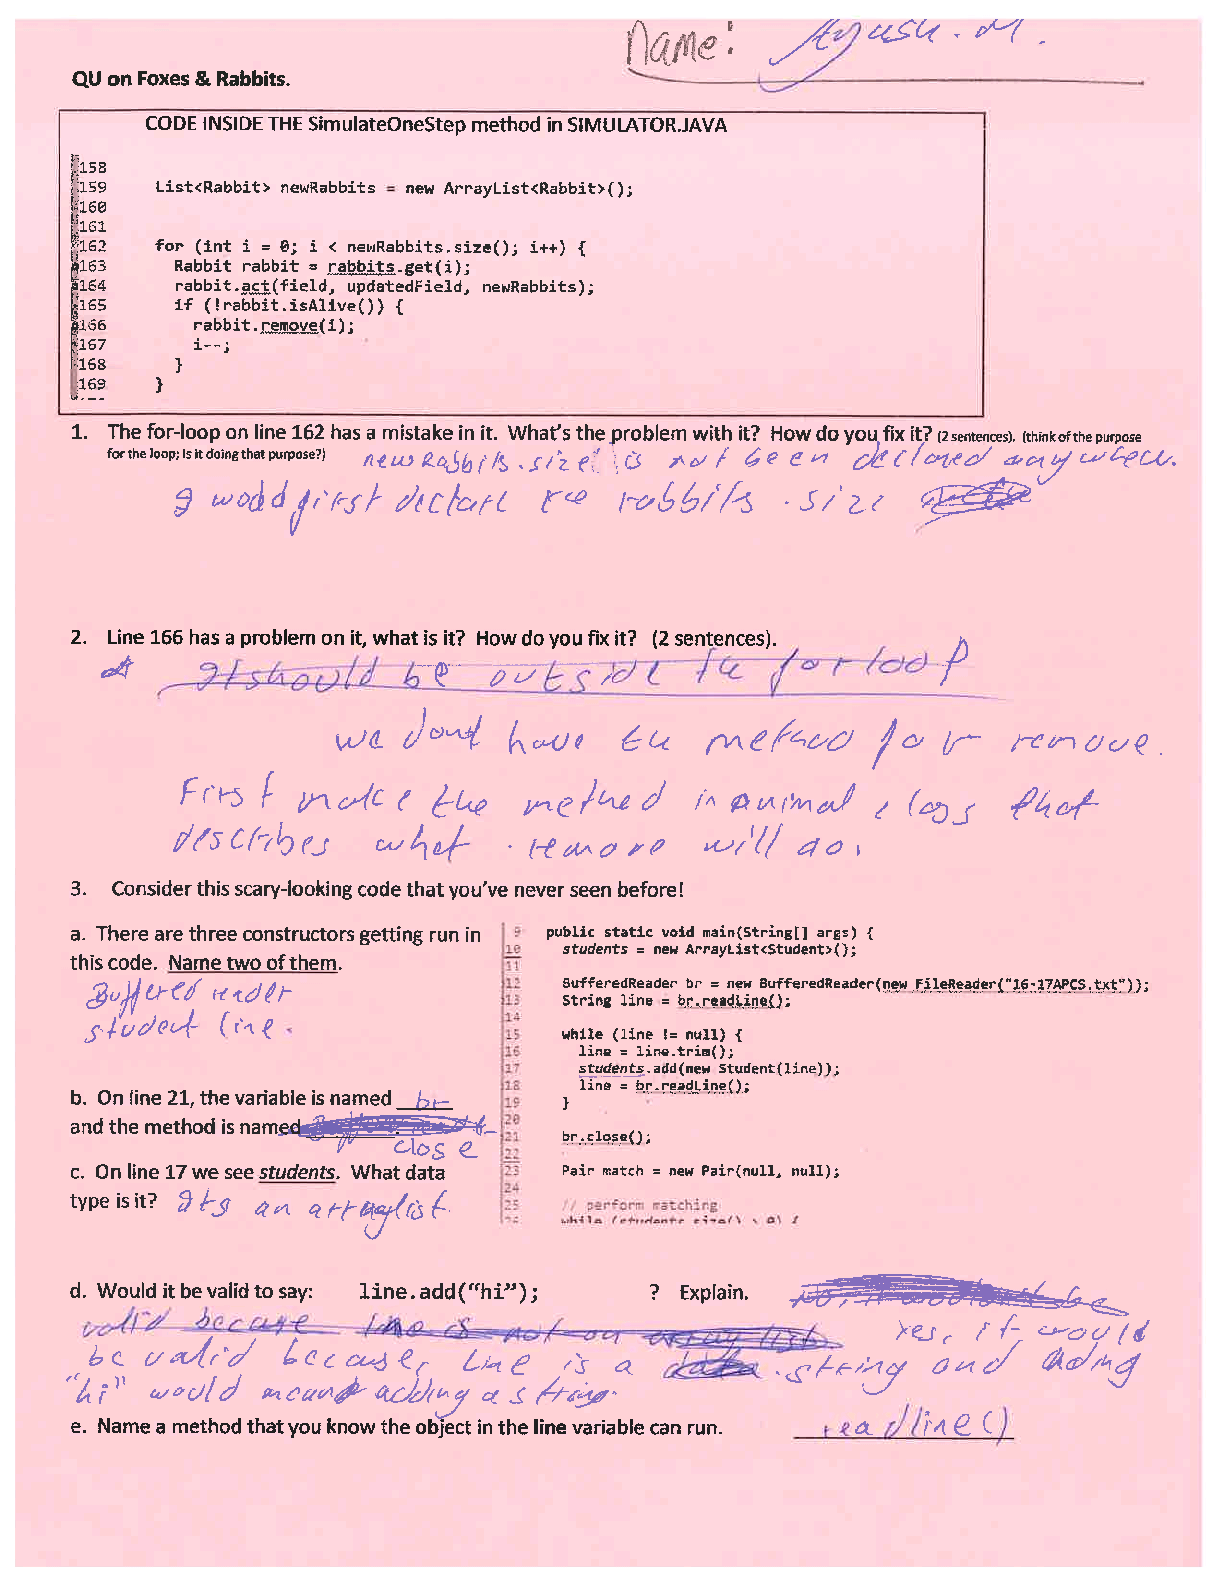 Name: Ayush. M.
QU on Foxes & Rabbits.
CODE INSIDE THE SimulateOneStep method in SIMULATOR.JAVA
158
159 List<Rabbit> newRabbits = new ArrayList<Rabbit>();
160
161
162 for (int i = 0; i < newRabbits.size(); i++) {
163 Rabbit rabbit = rabbits.get(i);
164 rabbit.act(field, updatedField, newRabbits);
165 if (!rabbit.isAlive()) {
166 rabbit.remove(i);
167 i--;
168 }
169 }
1. The for-loop on line 162 has a mistake in it. What's the problem with it? How do you fix it? (2 sentences). (think of the purpose
for the loop; Is it doing that purpose?) newRabbits.size is not been declared anywhere.
I would first declare the rabbits.size
2. Line 166 has a problem on it, what is it? How do you fix it? (2 sentences).
It should be outside the for loop
we dont have the method for remove.
First make the method in animal class that
describes what remove will do.
3. Consider this scary-looking code that you've never seen before!
a. There are three constructors getting run in
this code. Name two of them.
Buffered reader
student line.
b. On line 21, the variable is named br
and the method is named
close
c. On line 17 we see students. What data
type is it? Its an arraylist.
9 public static void main(String[] args) {
10 students = new ArrayList<Student>();
11
12 BufferedReader br = new BufferedReader(new FileReader("16-17APCS.txt"));
13 String line = br.readLine();
14
15 while (line != null) {
16 line = line.trim();
17 students.add(new Student(line));
18 line = br.readLine();
19 }
20
21 br.close();
22
23 Pair match = new Pair(null, null);
24
25 // perform matching
while (students.size() > 0) {
d. Would it be valid to say: line.add("hi"); ? Explain. No, it wouldnt be
valid because line is not an array list. Yes, it would
be valid because, Line is a string and adding
"hi" would mean adding a string.
e. Name a method that you know the object in the line variable can run. readline()